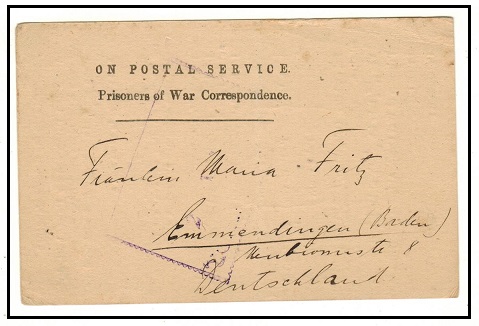 ON POSTAL SERVICE.
Prisoners of War Correspondence.
Fräulein Maria Fritz
Emmendingen (Baden)
8
Deutschland